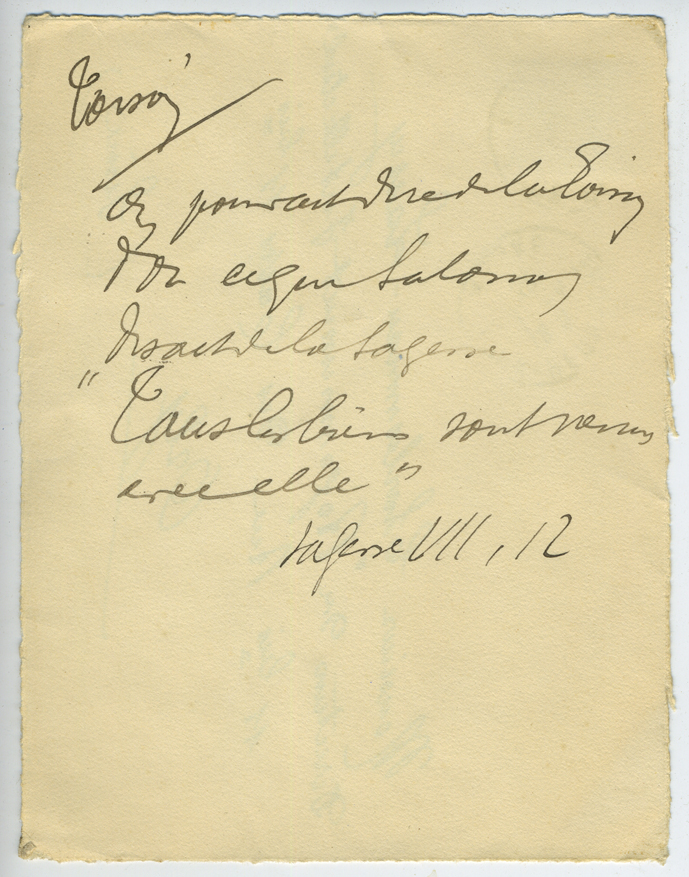 On pourrait dire de la
ce que Salomon
disait de la Sagesse
"Tous les biens sont venus
avec elle"
Sagesse VII, 12